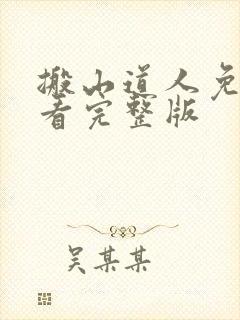 搬山道人免
看完整版
吴某某